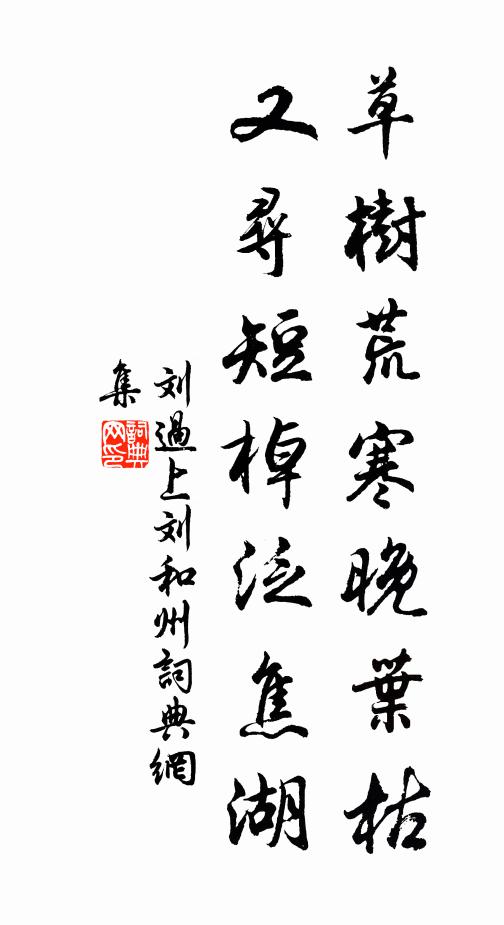 草樹荒寒晚葉枯
又尋短棹泛焦湖
刘過上刘和州詞典網
集
詞典网印